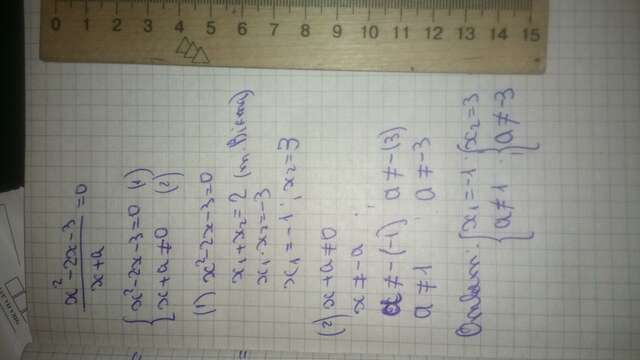 0 1 2 3 4 5 6 7 8 9 10 11 12 13 14 15
(x²-2x-3)/(x+a) =0
{x²-2x-3=0 (1)
{x+a≠0 (2)
(1) x²-2x-3=0
x₁+x₂=2 (т. Виета)
x₁·x₂=-3
x₁=-1 ; x₂=3
(2) x+a≠0
x≠-a
a≠-(-1) ; a≠-(3)
a≠1 a≠-3
Ответ: {x₁=-1 ; {x₂=3
{a≠1 {a≠-3